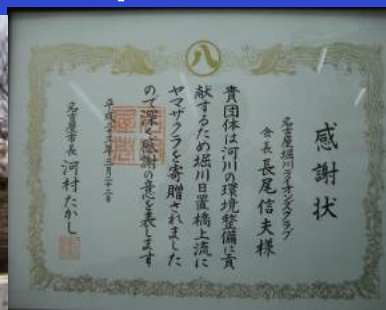 八
感謝状
名古屋堀川ライオンズクラブ
会長 長尾信夫様
貴団体は河川の環境整備に貢
献するため堀川日置橋上流に
ヤマザクラを寄贈されました
ので深く感謝の意を表します
平成二十三年三月二十二日
名古屋市長 河村たかし